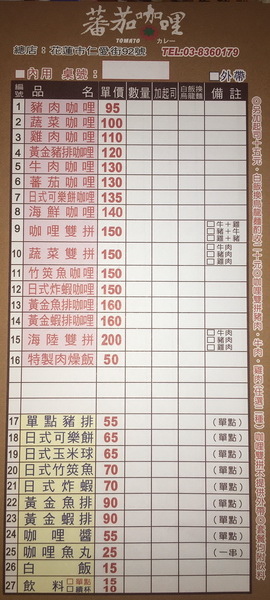 蕃茄咖哩
TOMATO カレー
總店：花蓮市仁愛街92號 TEL:03-8360179
□內用 桌號： □外帶
編號 品名 單價 數量 加起司 白飯換烏龍麵 備註
1 豬肉咖哩 95
2 蔬菜咖哩 100
3 雞肉咖哩 110
4 黃金豬排咖哩 120
5 牛肉咖哩 130
6 蕃茄咖哩 130
7 日式可樂餅咖哩 135
8 海鮮咖哩 140
9 咖哩雙拼 150 □牛+雞 □豬+牛 □豬+雞
10 蔬菜雙拼 150 □牛肉 □豬肉 □雞肉
11 竹筴魚咖哩 150
12 日式炸蝦咖哩 150
13 黃金魚排咖哩 160
14 黃金蝦排咖哩 160
15 海陸雙拼 200 □牛肉 □豬肉 □雞肉
16 特製肉燥飯 50
17 單點豬排 55 (單點)
18 日式可樂餅 65 (單點)
19 日式玉米球 65 (單點)
20 日式竹筴魚 70 (單點)
21 日式炸蝦 70 (單點)
22 黃金魚排 90 (單點)
23 黃金蝦排 90 (單點)
24 咖哩醬 55 (單點)
25 咖哩魚丸 25 (一串)
26 白飯 15
27 飲料 □單點 15 □續杯 10